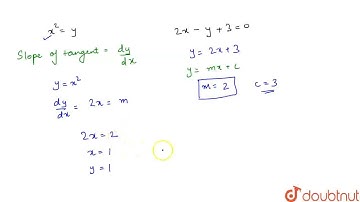 x² = y
Slope of tangent = dy/dx
y = x²
dy/dx = 2x = m
2x = 2
x = 1
y = 1
2x - y + 3 = 0
y = 2x + 3
y = mx + c
m = 2
c = 3
doubtnut